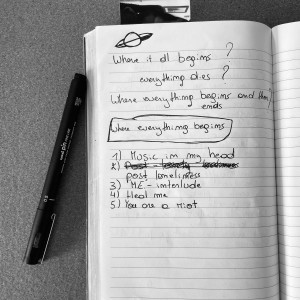 Where it all begins ?
everything dies ?
Where everything begins and then
ends
Where everything begins
1) Music in my head
2) Post - lonely
post loneliness
3) ME - interlude
4) Heal me
5) You are a riot